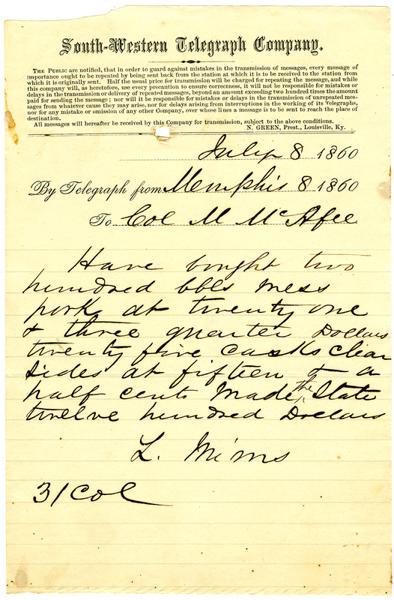 South-Western Telegraph Company.
THE PUBLIC are notified, that in order to guard against mistakes in the transmission of messages, every message of
importance ought to be repeated by being sent back from the station at which it is to be received to the station from
which it is originally sent. Half the usual price for transmission will be charged for repeating the message, and while
this company will, as heretofore, use every precaution to ensure correctness, it will not be responsible for mistakes or
delays in the transmission or delivery of repeated messages, beyond an amount exceeding two hundred times the amount
paid for sending the message; nor will it be responsible for mistakes or delays in the transmission of unrepeated mess-
ages from whatever cause they may arise, nor for delays arising from interruptions in the working of its Telegraphs,
nor for any mistake or omission of any other Company, over whose lines a message is to be sent to reach the place of
destination.
All messages will hereafter be received by this Company for transmission, subject to the above conditions.
N. GREEN, Prest., Louisville, Ky.
July 8 1860
By Telegraph from Memphis 8 1860
To Col M McAfee
Have bought two
hundred bbls mess
pork at twenty one
& three quarter Dollars
twenty five casks clear
sides at fifteen & a
half cents Made the State
twelve hundred Dollars
L. Mims
31 Col